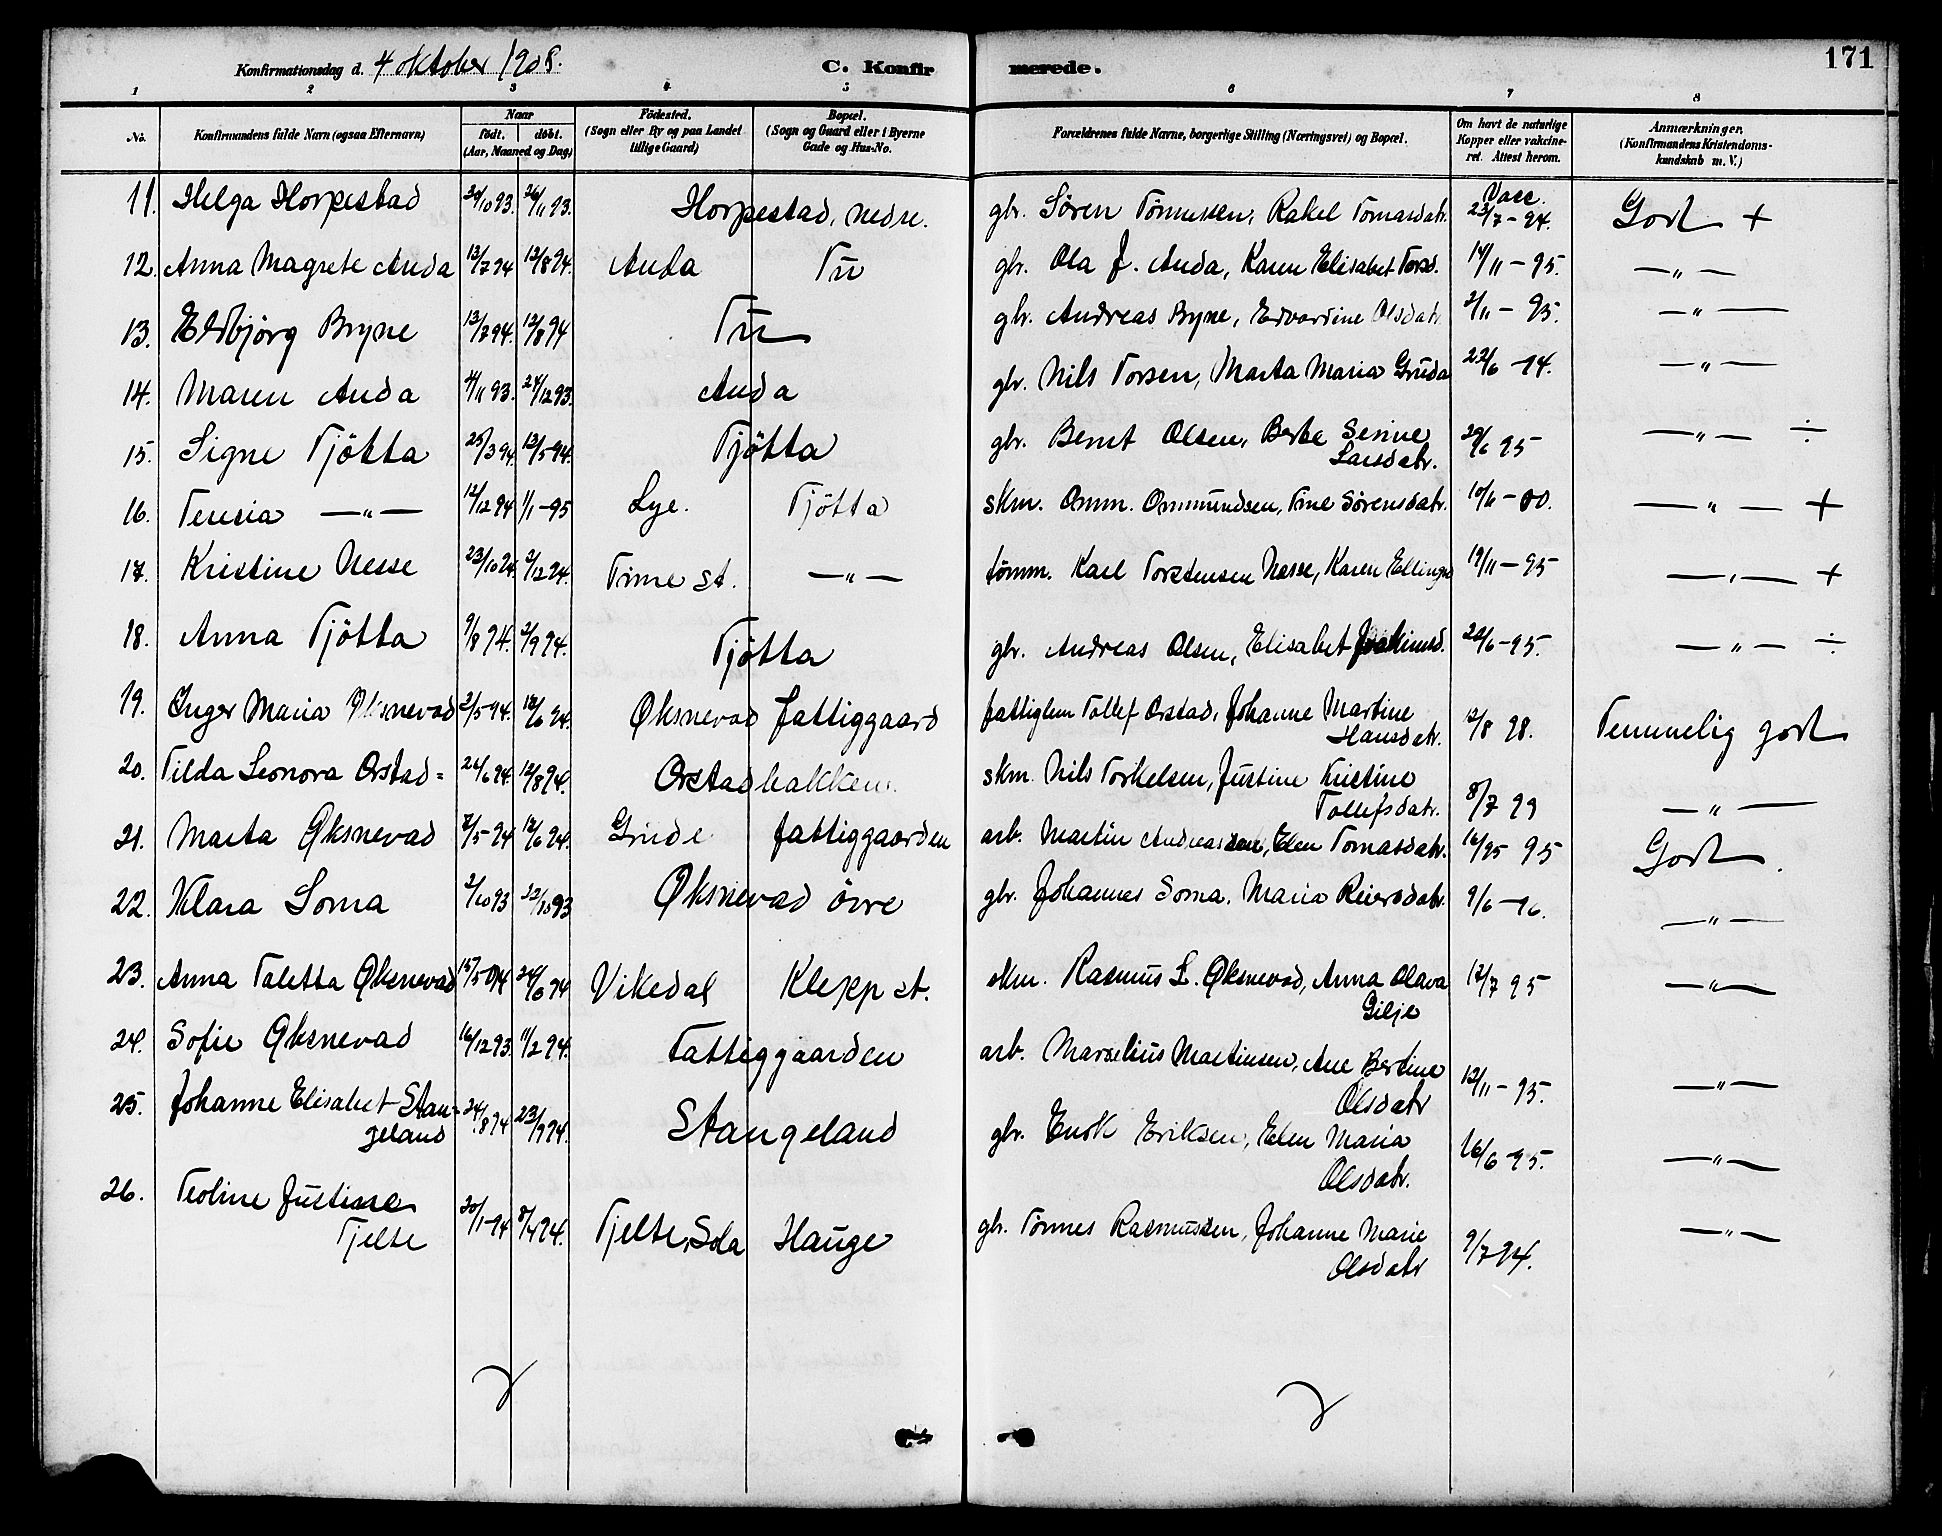 Konfirmationsdag d. 4 oktober 1908. C. Konfirmerede. 171
1 2 3 4 5 6 7 8
No. Konfirmandens fulde Navn (ogsaa Efternavn) Naar født. døbt. (Aar, Maaned og Dag) Fødested. (Sogn eller By og paa Landet tillige Gaard) Bopæl. (Sogn og Gaard eller i Byerne Gade og Hus-No. Forældrenes fulde Navne, borgerlige Stilling (Næringsvei) og Bopæl. Om havt de naturlige Kopper eller vakcineret. Attest herom. Anmærkninger. (Konfirmandens Kristendomskundskab m. V.)
11. Helga Horpestad 20/10 93. 26/11 93. Horpestad, nedre. gbr. Søren Tønnessen, Rakel Tomasdatr. Vacc. 23/7-94. Godt +
12. Anna Magrete Anda 13/7 94 12/8 94. Anda Tu gbr. Ola J. Anda, Karen Elisabet Torsd. 14/11-95. —„—
13. Eldbjörg Bryne 12/7 94. 12/8 94 Tu gbr. Andreas Bryne, Edvardine Olsdatr. 2/11-95. —„—
14. Maren Anda 4/11 93. 24/12 93. Anda gbr. Nils Torsen, Marta Maria Gruda 22/6-94. —„—
15. Signe Tjötta 25/3 94. 13/5 94. Tjötta gbr. Bernt Olsen, Berte Serine Larsdatr. 29/6 95 —„— ÷
16. Teresia —„— 12/12 94 1/1-95 Lye. Tjötta skm. Omm. Ommundsen, Tine Sørensdatr. 10/11-00. —„— +
17. Kristine Nesse 23/10 94. 2/12 94. Time st. —„— tömm. Karl Torstensen Nesse, Karen Ellingsd 19/11-95 —„— +
18. Anna Tjötta 9/8 94. 2/9 94. Tjötta gbr. Andreas Olsen, Elisabet Joakimsd. 22/6-95. —„— ÷
19. Inger Maria Øksnevad 2/5 94. 12/6 94. Øksnevad fattiggaard fattiglem Tollef Orstad, Johanne Martine Hansdatr. 12/8 98. Temmelig godt
20. Tilda Leonora Orstad= 24/6 94. 12/8 94. Orstadbakken. skm. Nils Torkelsen, Justine Kristine Tollefsdatr. 8/7 99 —„—
21. Marta Øksnevad 7/5-94 12/6 94. Grude fattiggaarden arb. Martin Andreassen, Elen Tomasdatr. 16/95 95 Godt.
22. Klara Soma 2/10 93 22/10 93 Øksnevad övre gbr. Johannes Soma, Maria Reiersdatr. 9/6-96. —„—
23. Anna Taletta Øksnevad 15/5 94 24/6 94 Vikedal Klepp st. skm. Rasmus L. Øksnevad, Anna Olava Gilje 12/7 95 —„—
24. Sofie Øksnevad 16/12 93. 11/2 94. Fattiggaarden arb. Marselius Martinsen, Ane Bertine Olsdatr 12/11-95. —„—
25. Johanne Elisabet Stangeland 24/8 94 23/9 94. Stangeland gbr. Enok Eriksen, Elen Maria Olsdatr. 16/6-95. —„—
26. Teoline Justine Tjelte 20/1-94 8/4 94. Tjelte, Sola Hauge gbr. Tönnes Rasmussen, Johanne Marie Olsdatr 9/7 94. —„—